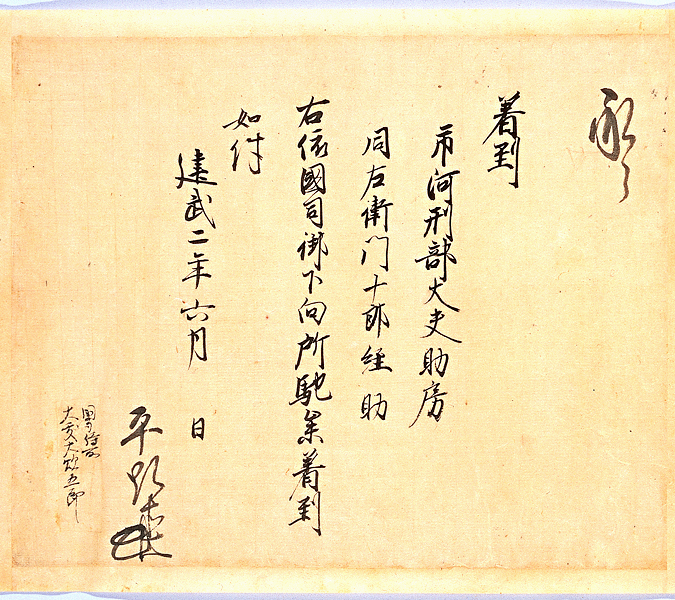 承了
着到
市河刑部大夫助房
同左衛門十郎経助
右依國司御下向所馳参着到
如件
建武二年六月 日
平
國司侍所
大炊五郎